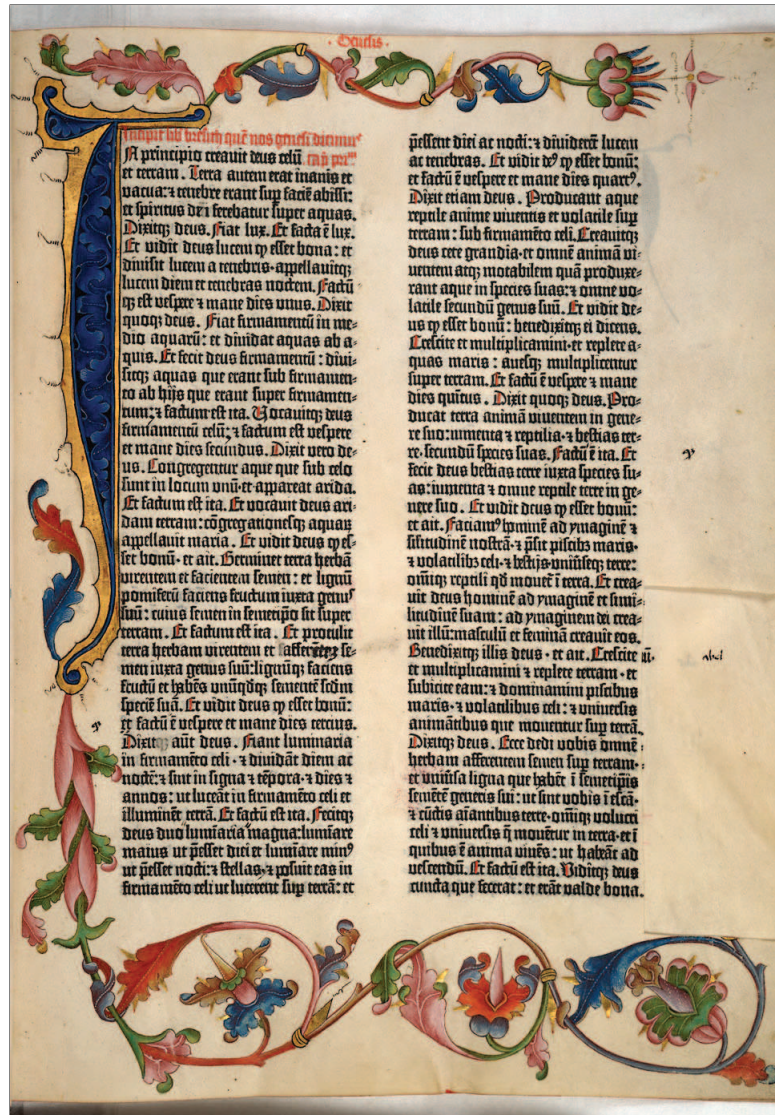 · Genesis ·
Incipit lib bresith quē nos genesi dicimꝰ
IN principio creavit deus celū ca͞p pri͞m
et terram. Terra autem erat inanis et
vacua: ⁊ tenebre erant sup faciē abissi:
et spiritus dei ferebatur super aquas.
Dixitqꝫ deus. Fiat lux. Et facta ē lux.
Et vidit deus lucem ꝙ esset bona: et
divisit lucem a tenebris · appellavitqꝫ
lucem diem et tenebras noctem. Factū
qꝫ est vespere ⁊ mane dies unus. Dixit
quoqꝫ deus. Fiat firmamentū in me-
dio aquarū: et dividat aquas ab a-
quis. Et fecit deus firmamentū: divi-
sitqꝫ aquas que erant sub firmamen-
to ab hijs que erant super firmamen-
tum: ⁊ factum est ita. Vocavitqꝫ deus
firmamentū celū: ⁊ factum est vespere
et mane dies secundus. Dixit vero de-
us. Congregentur aque que sub celo
sunt in locum unū · et appareat arida.
Et factum est ita. Et vocavit deus ari-
dam terram: cōgregationesqꝫ aquaꝝ
appellavit maria. Et vidit deus ꝙ es-
set bonū · et ait. Germinet terra herbā
virentem et facientem semen: et lignū
pomiferū faciens fructum iuxta genuꝰ
suū: cuius semen in semetipō sit super
terram. Et factum est ita. Et protulit
terra herbam virentem et se-
men iuxta genus suū: lignūqꝫ faciens
fructū et habēs unūqdqꝫ sementē scdm
speciē suā. Et vidit deus ꝙ esset bonū:
factū ē vespere et mane dies tercius.
Dixitqꝫ aūt deus. Fiant luminaria
in firmamēto celi · ⁊ dividāt diem ac
noctē: ⁊ sint in signa ⁊ tēpora · ⁊ dies ⁊
annos: ut luceāt in firmamēto celi et
illuminēt terrā. Et factū est ita. Fecitqꝫ
deus duo lumīaria magna: lumīare
maius ut p̄esset diei et lumīare minꝰ
ut p̄esset nocti: ⁊ stellas · ⁊ posuit eas in
firmamēto celi ut lucerent sup terrā: et
p̄essent diei ac nocti: ⁊ dividerēt lucem
ac tenebras. Et vidit deꝰ ꝙ esset bonū:
et factū ē vespere et mane dies quartꝰ.
Dixit etiam deus. Producant aque
reptile anime viventis et volatile sup
terram: sub firmamēto celi. Creavitqꝫ
deus cete grandia · et omnē animā vi-
ventem atqꝫ motabilem quā produxe-
rant aque in species suas: ⁊ omne vo-
latile secundū genus suū. Et vidit de-
us ꝙ esset bonū: benedixitqꝫ ei dicens.
Crescite et multiplicamini · et replete a-
quas maris: avesqꝫ multiplicentur
super terram. Et factū ē vespere ⁊ mane
dies quītus. Dixit quoqꝫ deus. Pro-
ducat terra animā viventem in gene-
re suo: iumenta ⁊ reptilia · ⁊ bestias ter-
re · secundū species suas. Factū ē ita. Et
fecit deus bestias terre iuxta species su-
as: iumenta ⁊ omne reptile terre in ge-
nere suo. Et vidit deus ꝙ esset bonū:
et ait. Faciamꝰ hominē ad ymaginē ⁊
silitudinē nostrā · ⁊ p̄sit piscibꝫ maris ·
⁊ volatilibꝫ celi · ⁊ bestijs · univseqꝫ terre:
omīqꝫ reptili qd movet ī terra. Et crea-
vit deus hominē ad ymaginē et simi-
litudinē suam: ad ymaginem dei crea-
vit illū: masculū et feminā creavit eos.
Benedixitqꝫ illis deus · et ait. Crescite
et multiplicamini ⁊ replete terram · et
subicite eam: ⁊ dominamini piscibus
maris · ⁊ volatilibus celi: ⁊ universis
animātibus que moventur sup terrā.
Dixitqꝫ deus. Ecce dedi vobis omnē
herbam afferentem semen sup terram ·
et univsa ligna que habēt ī semetipīs
semētē generis sui: ut sint vobis ī escā ·
⁊ cūctis aīantibus terre · omīqꝫ volucri
celi ⁊ universis q̄ movētur in terra · et ī
quibus ē anima vivēs: ut habeāt ad
vescendū. Et factū est ita. Viditqꝫ deus
cuncta que fecerat: et erāt valde bona.